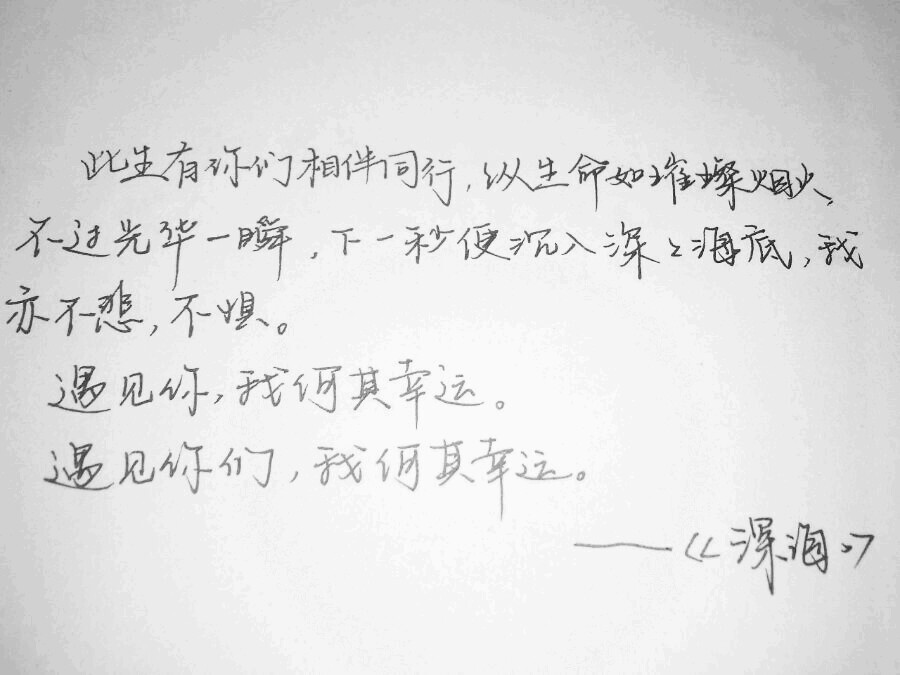 此生有你们相伴同行,纵生命如璀璨烟火,
不过光华一瞬,下一秒便沉入深々海底,我
亦不悲,不惧。
遇见你,我何其幸运。
遇见你们,我何其幸运。
——《深海》